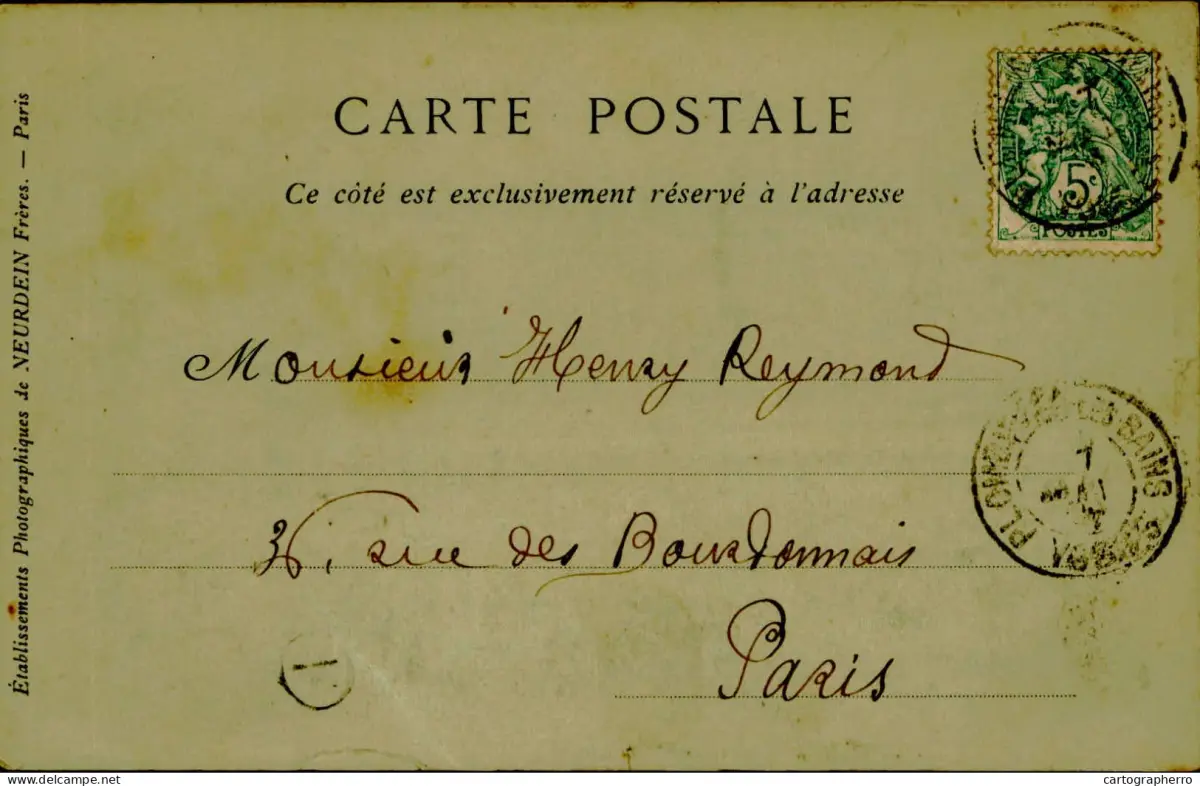 CARTE POSTALE
Ce côté est exclusivement réservé à l'adresse
Établissements Photographiques de NEURDEIN Frères. — Paris
5c
POSTES
Monsieur Henry Reymond
36, rue des Bourdonnais
Paris
PLOMBIÈRES-LES-BAINS VOSGES
7
1
delcampe.net
cartographerro